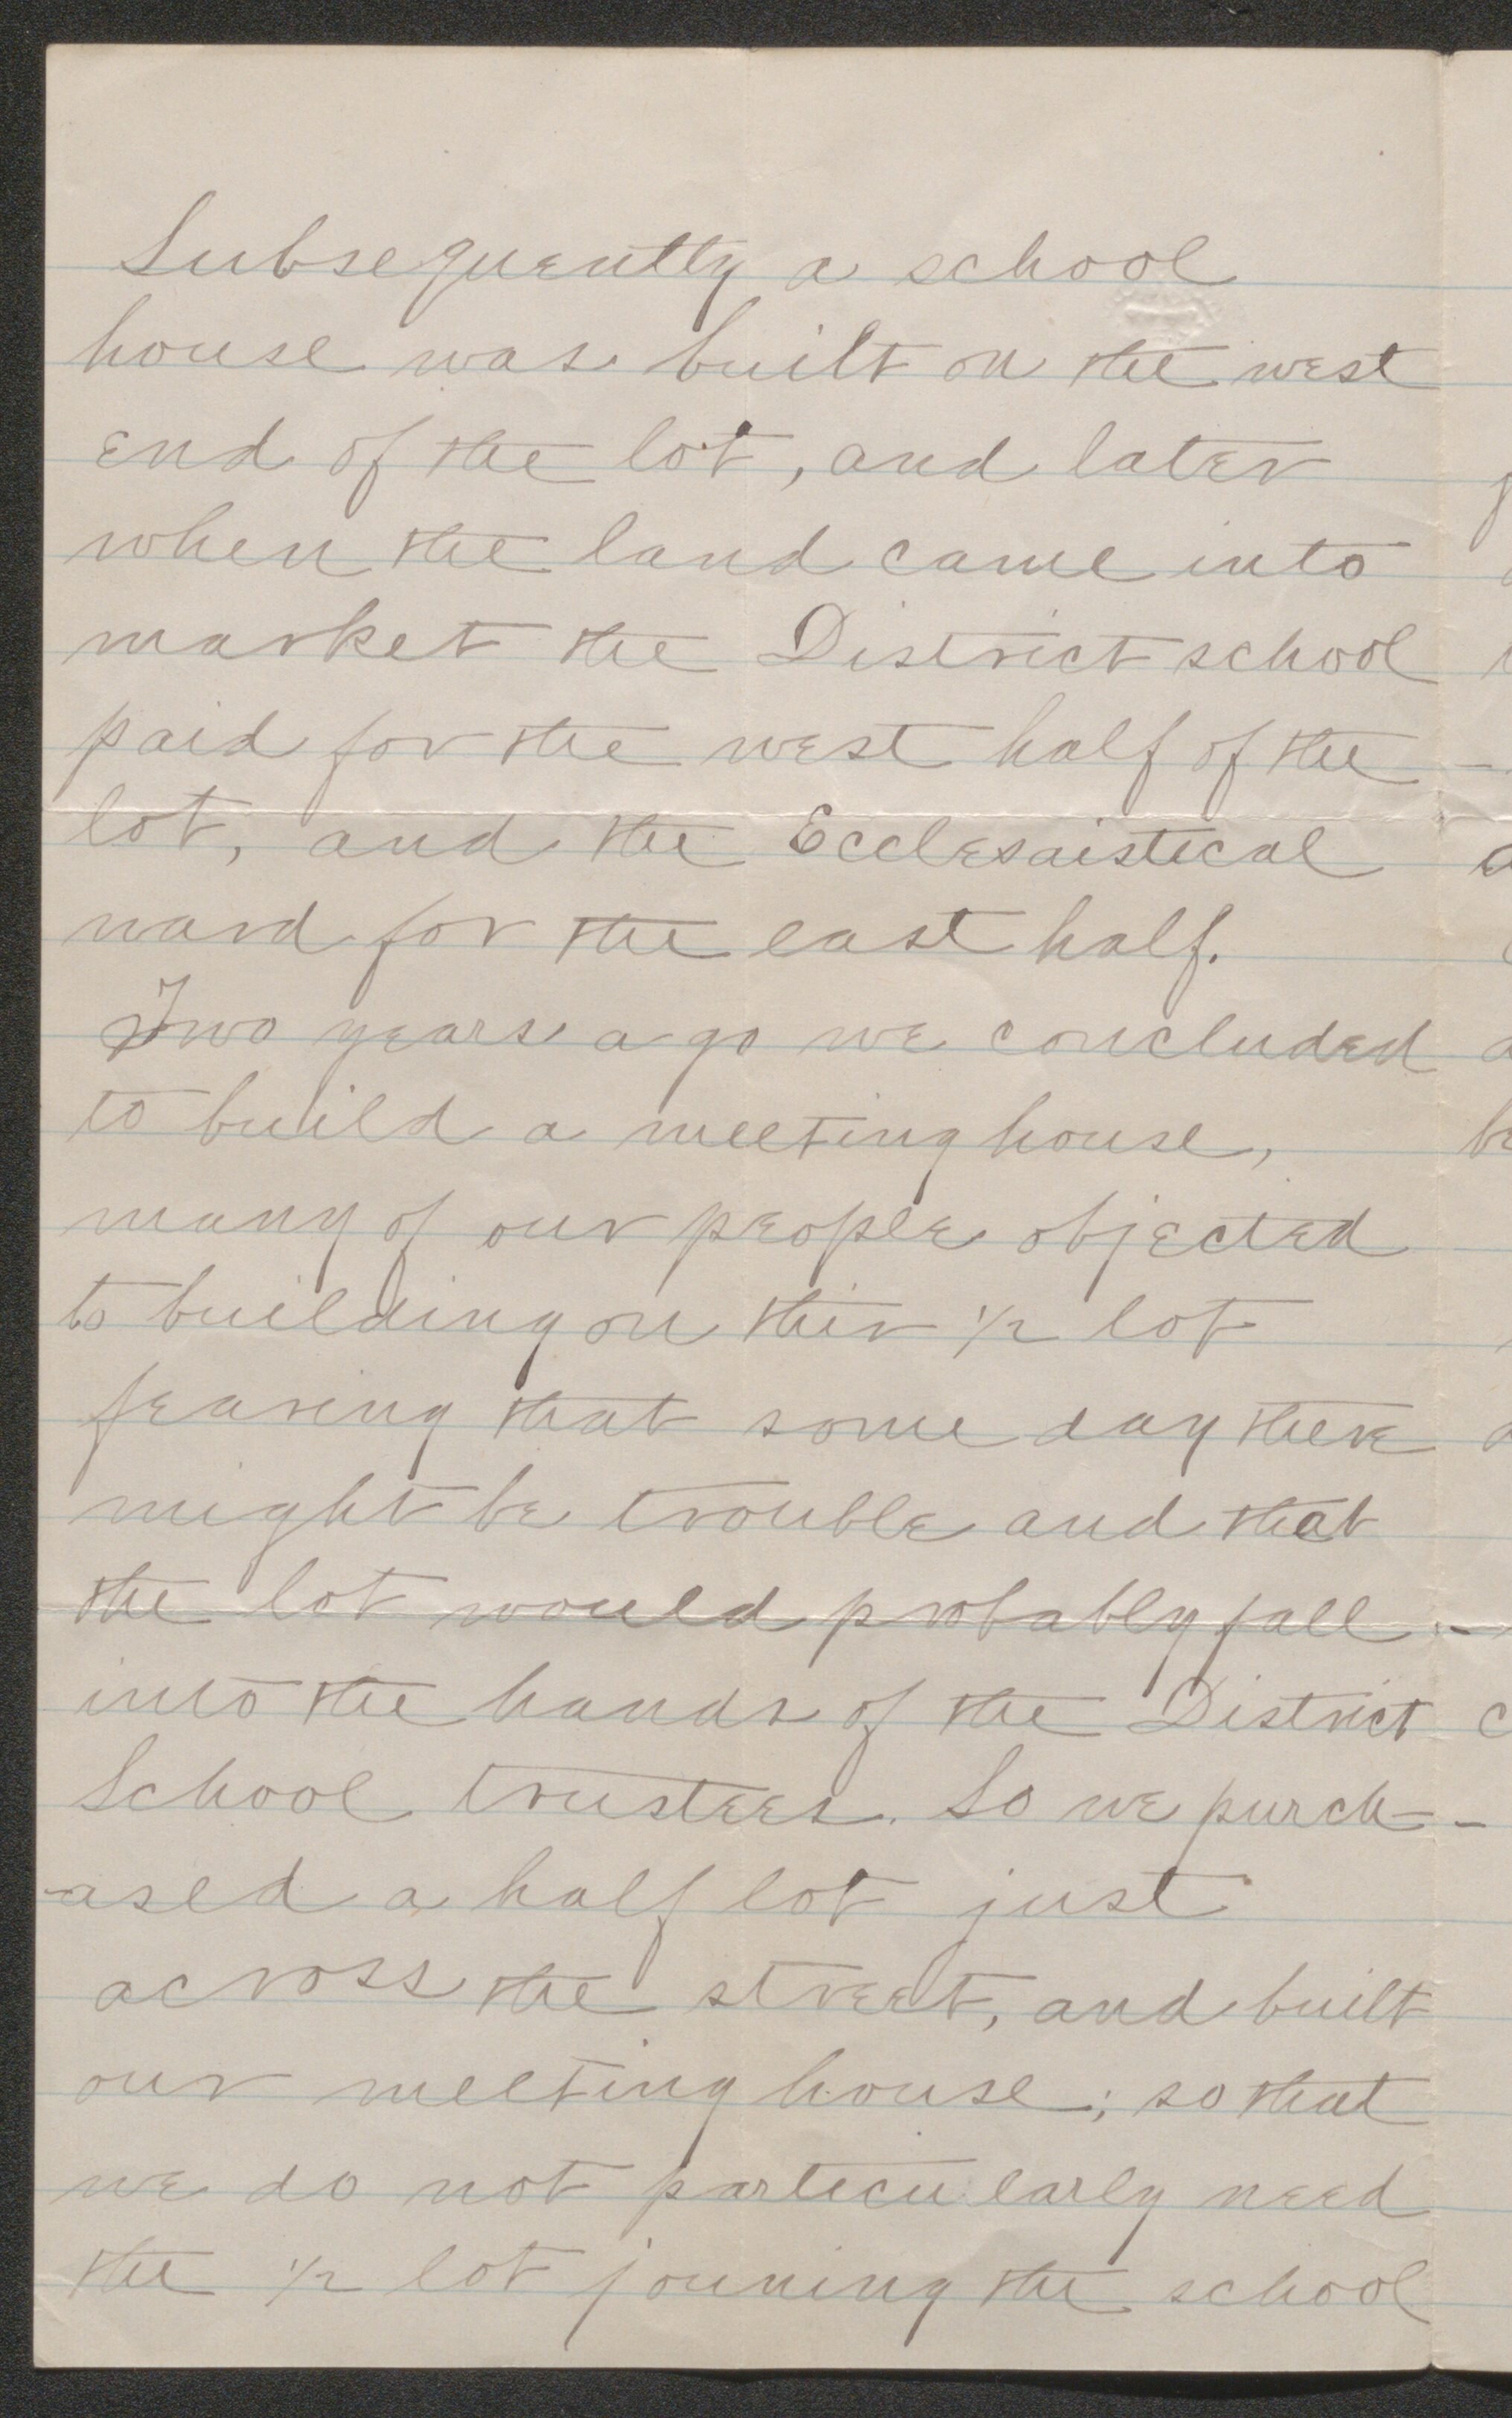 Subsequently a school
house was built on the west
end of the lot, and later
when the land came into
market the District school
paid for the west half of the
lot, and the Ecclesaistical
ward for the east half.
Two years ago we concluded
to build a meeting house,
many of our people objected
to building on this 1/2 lot
fearing that some day there
might be trouble and that
the lot would probably fall
into the hands of the District
School trustees. So we purch-
-ased a half lot just
across the street, and built
our meeting house; so that
we do not particularly need
the 1/2 lot joining the school